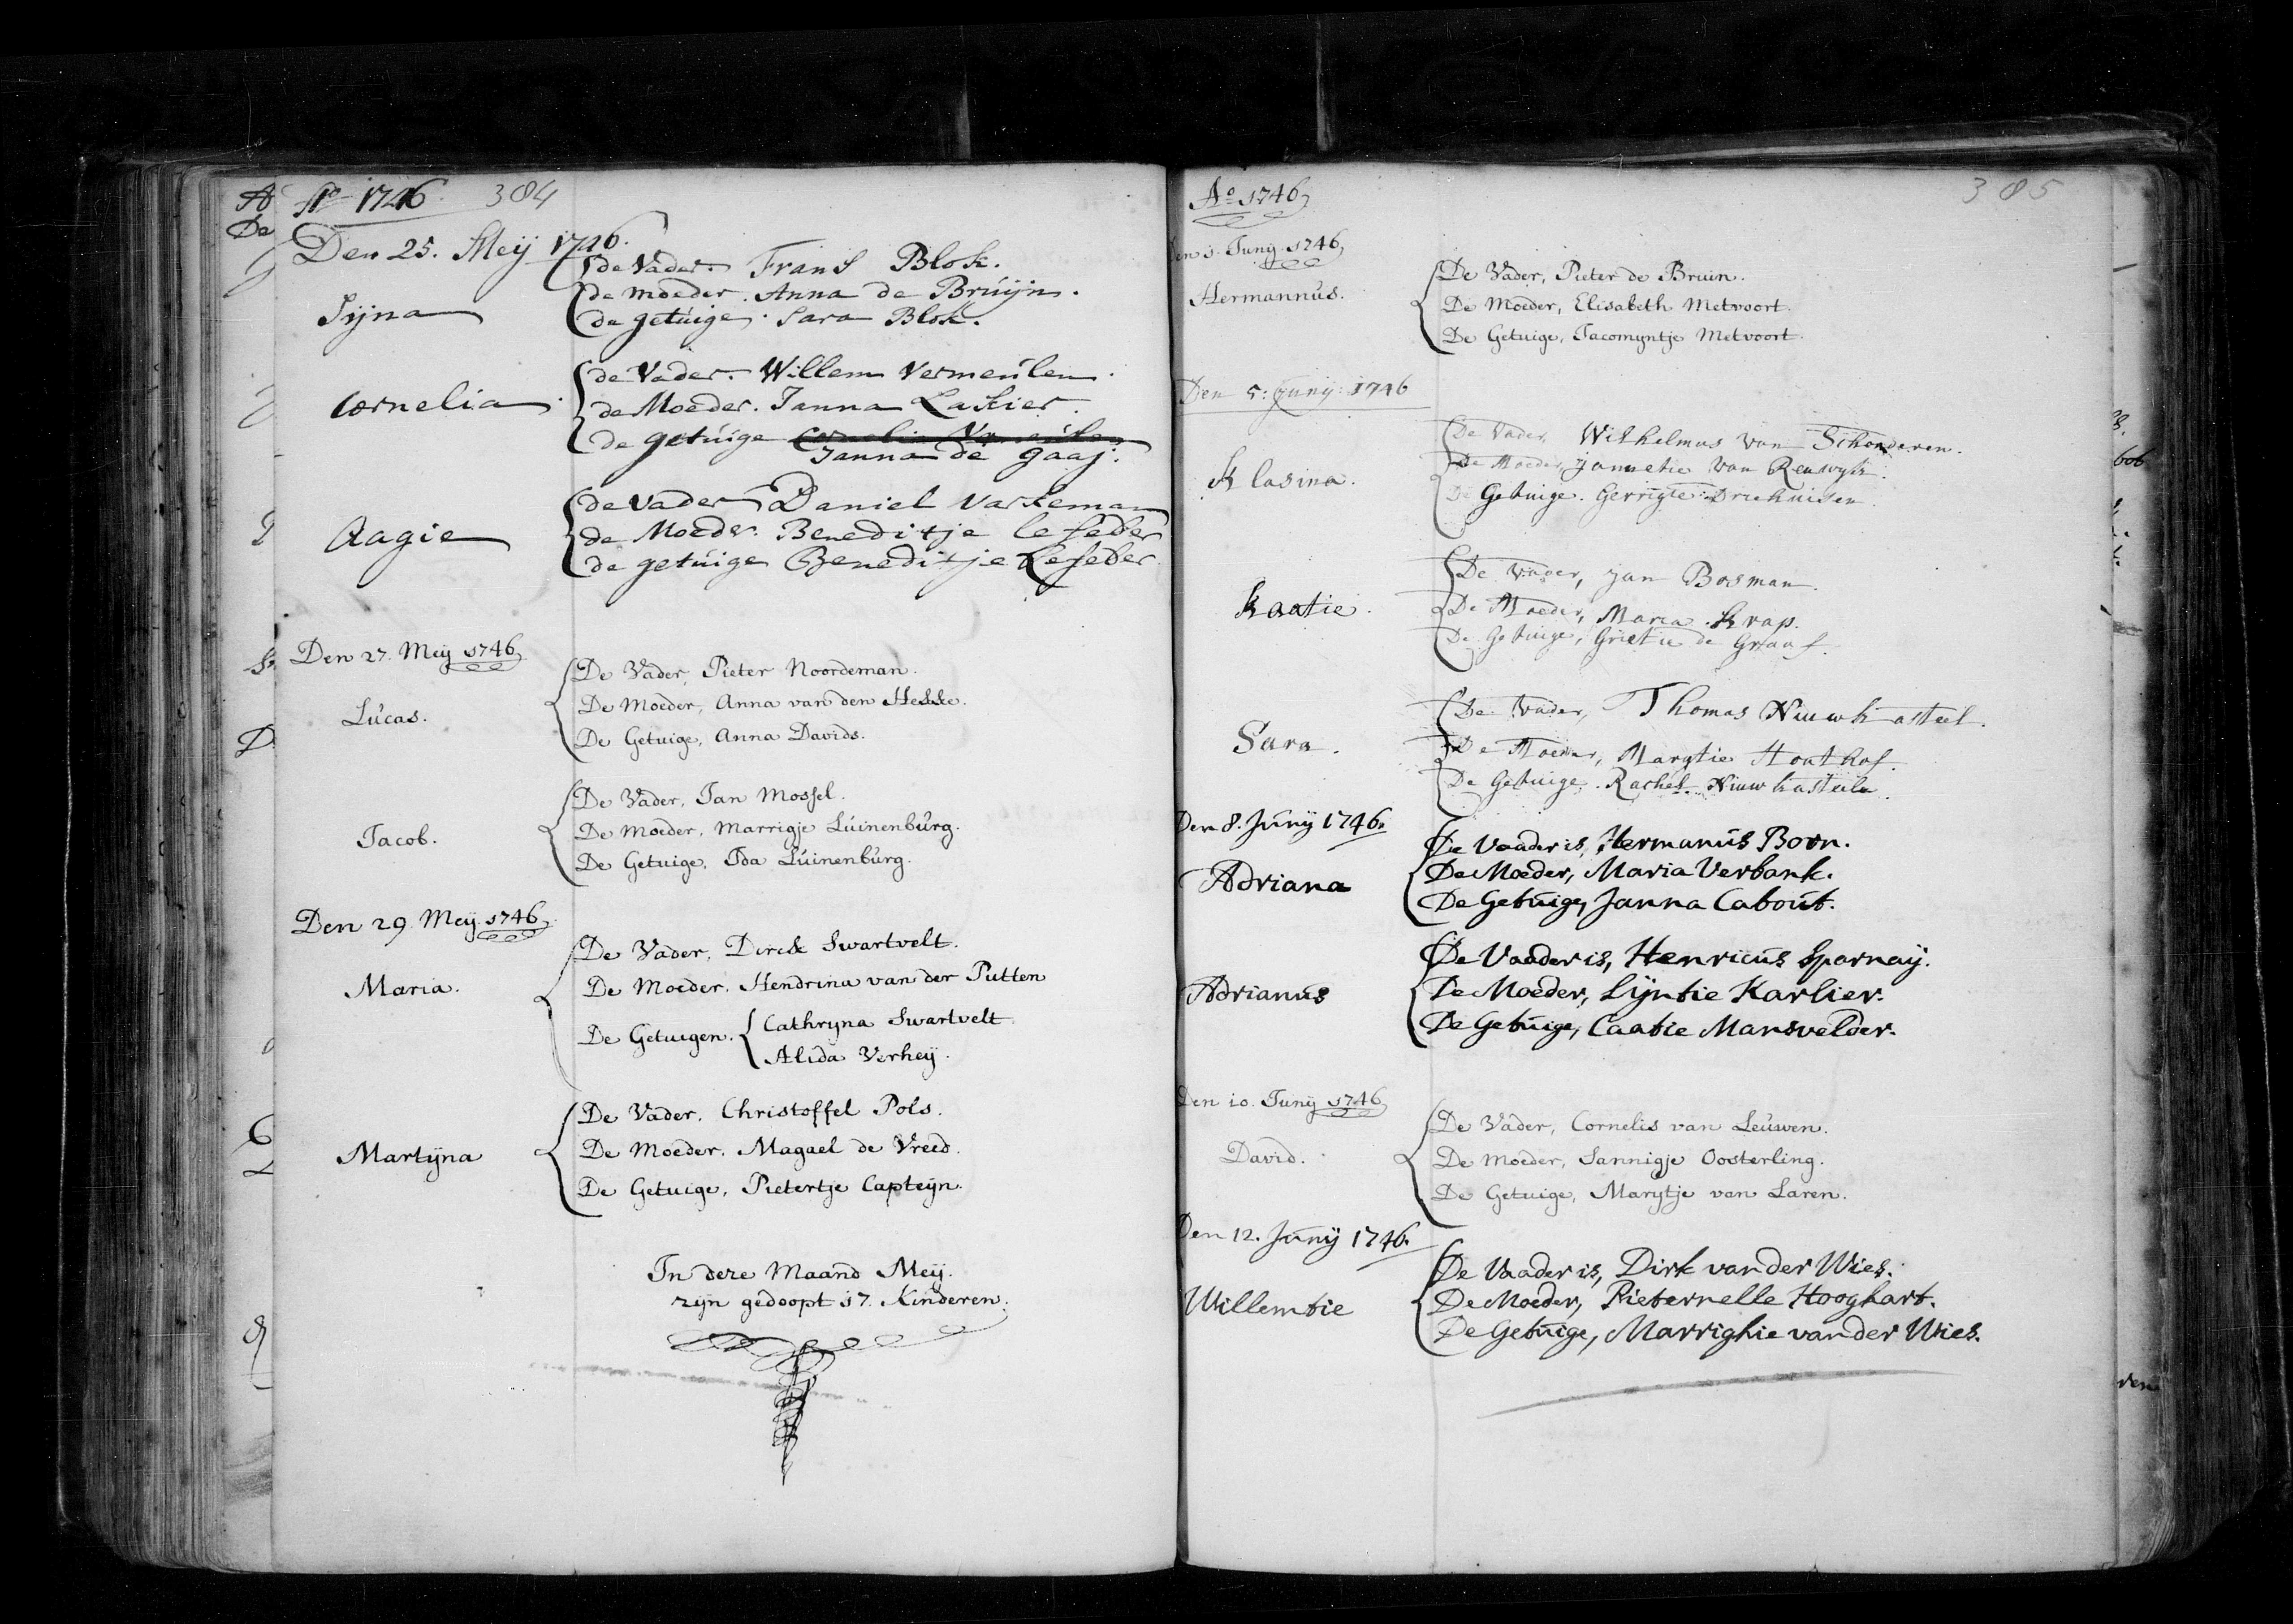 Ao 1746. 384
Den 25. Meij 1746.
Sijna
de Vader. Frans Blok.
de moeder. Anna de Bruijn.
de getuige. Sara Blok.
Cornelia
de Vader. Willem Vermeulen.
de Moeder. Janna Laskier.
de getuige Cornelia Vermeulen
Janna de gaaj.
Aagie
de Vader Daniel Varkeman
de Moeder. Beneditje lefeber
de getuige Beneditje Lefeber
Den 27. Meij 1746
Lucas.
De Vader, Pieter Noordeman.
De Moeder, Anna van den Hekke.
De Getuige, Anna Davids.
Jacob.
De Vader, Jan Mossel.
De Moeder, Marrigje Luinenburg.
De Getuige, Ida Luinenburg.
Den 29. Meij 1746
Maria.
De Vader, Dirck Swartvelt.
De Moeder, Hendrina van der Putten
De Getuigen. Cathryna Swartvelt
Alida Verheij.
Martijna
De Vader, Christoffel Pols.
De Moeder, Magael de Vreed.
De Getuige, Pietertje Capteijn.
In deze Maand Meij.
zyn gedoopt 17. Kinderen.
Ao 1746 385
Den 3. Junij 1746
Hermannus.
De Vader, Pieter de Bruin.
De Moeder, Elisabeth Metvoort.
De Getuige, Jacomyntje Metvoort.
Den 5: Junij: 1746
Klasina.
De Vader, Wilhelmus van Schonderen.
De Moeder, Jannetie van Renswyk.
De Getuige. Gerrigie Driehuisen
Kaatie.
De Vader, Jan Bosman.
De Moeder, Maria Krap.
De Getuige, Grietie de Graaf.
Sara.
De Vader, Thomas Niuwkasteel.
De Moeder, Marytie Houthof.
De Getuige. Rachel Niuwkasteele.
Den 8. Junij 1746.
Adriana
De Vaader is, Hermanus Born.
De Moeder, Maria Verbank.
De Getuige, Janna Cabout.
Adrianus
De Vaader is, Henricus Sparnaij.
De Moeder, Lijntie Karlier.
De Getuige, Caatie Mansvelder.
Den 10. Junij 1746
David.
De Vader, Cornelis van Leuwen.
De Moeder, Sannigje Oosterling.
De Getuige, Marytje van Laren.
Den 12. Junij 1746.
Willemtie
De Vaader is, Dirk van der Wies.
De Moeder, Pieternelle Hooghart.
De Getuige, Marrighie van der Wies.